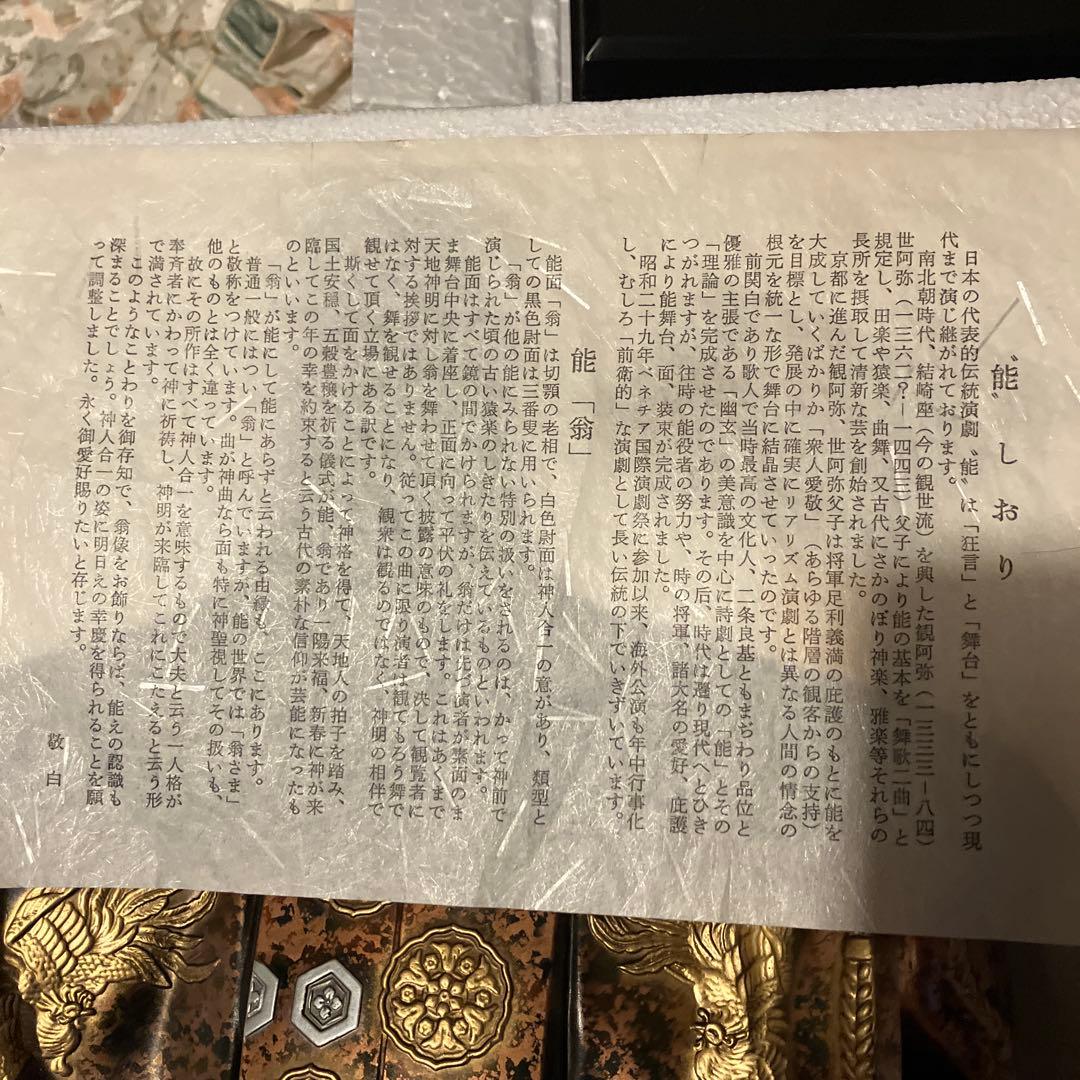 〝能〟しおり
日本の代表的伝統演劇〝能〟は「狂言」と「舞台」をともにしつつ現
代まで演じ継がれております。
南北朝時代、結崎座（今の観世流）を興した観阿弥（一三三三－八四）
世阿弥（一三六二？－一四四三）父子により能の基本を「舞歌二曲」と
規定し、田楽や猿楽、曲舞、又古代にさかのぼり神楽、雅楽等それらの
長所を摂取して清新な芸を創始されました。
京都に進んだ観阿弥、世阿弥父子は将軍足利義満の庇護のもとに能を
大成していくばかりか「衆人愛敬」（あらゆる階層の観客からの支持）
を目標とし、発展の中に確実にリアリズム演劇とは異なる人間の情念の
根元を統一な形で舞台に結晶させていったのです。
前関白であり歌人で当時最高の文化人、二条良基ともまぢわり品位と
優雅の主張である「幽玄」の美意識を中心に詩劇としての「能」とその
「理論」を完成させたのであります。その后、時代は遷り現代へとひき
つがれますが、往時の能役者の努力や、時の将軍、諸大名の愛好、庇護
により能舞台、面、装束が完成されました。
昭和二十九年ベネチア国際演劇祭に参加以来、海外公演も年中行事化
し、むしろ「前衛的」な演劇として長い伝統の下でいきずいています。
能「翁」
能面「翁」は切顎の老相で、白色尉面は神人合一の意があり、類型と
しての黒色尉面は三番叟に用いられます。
「翁」が他の能にみられない特別の扱いをされるのは、かって神前で
演じられた頃の古い猿楽のしきたりを伝えているものといわれます。
能面はすべて鏡の間でかけられますが、翁だけは先づ演者が素面のま
ま舞台中央に着座し、正面に向って平伏の礼をします。これはあくまで
天地神明に対し翁を舞わせて頂く披露の意味のもので、決して観覧者に
対する挨拶ではありません。従ってこの曲に限り演者は観てもろう舞で
はなく、舞を観せることになり、観衆は観るのではなく、神明の相伴で
観せて頂く立場にある訳です。
斯くして面をかけることによって神格を得て、天地人の拍子を踏み、
国土安穏、五穀豊穣を祈る儀式が能、翁であり一陽来福、新春に神が来
臨してこの年の幸を約束すると云う古代の素朴な信仰が芸能になったも
のといいます。
「翁」が能にして能にあらずと云われる由縁も、ここにあります。
普通一般にはつい「翁」と呼んでいますが、能の世界では「翁さま」
と敬称をつけています。曲が神曲なら面も特に神聖視してその扱いも、
他のものとは全く違っています。
故にその所作はすべて神人合一を意味するもので大夫と云う一人格が
奉斉者にかわって神に祈祷し、神明が来臨してこれにこたえると云う形
で満されています。
このようなことわりを御存知で、翁像をお飾りならば、能えの認識も
深まることでしょう。神人合一の姿に明日えの幸慶を得られることを願
って調整しました。永く御愛好賜りたいと存じます。
敬白